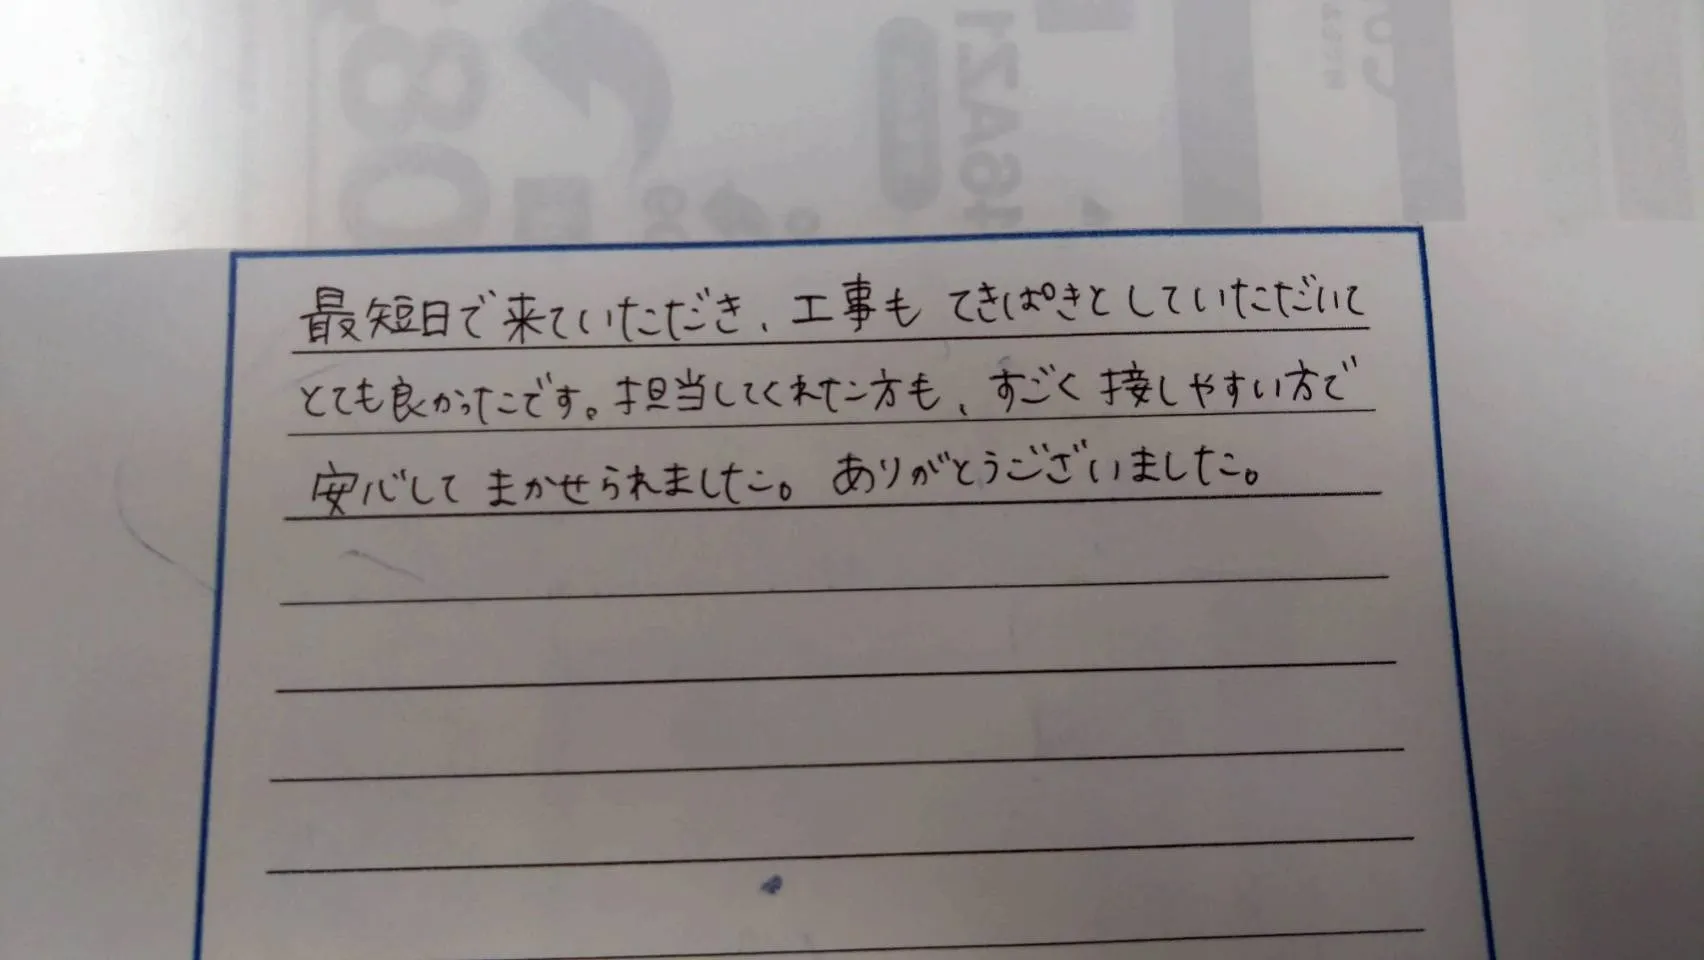 最短日で来ていただき、工事も てきぱきとしていただいて
とても良かったです。担当してくれた方も、すごく接しやすい方で
安心して まかせられました。ありがとうございました。